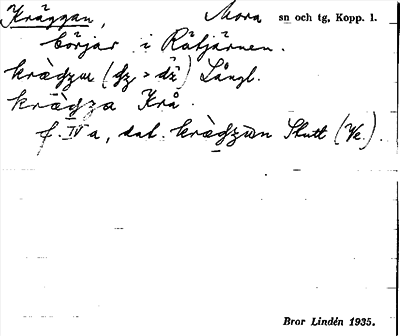 Kräggan, Mora sn och tg, Kopp. l.
börjar i Råtjärnen.
kràgza (gz > dz) Långl.
kràgza Krå.
f. IV a, dat. kràgzun Skutt (Ve.).
Bror Lindén 1935.